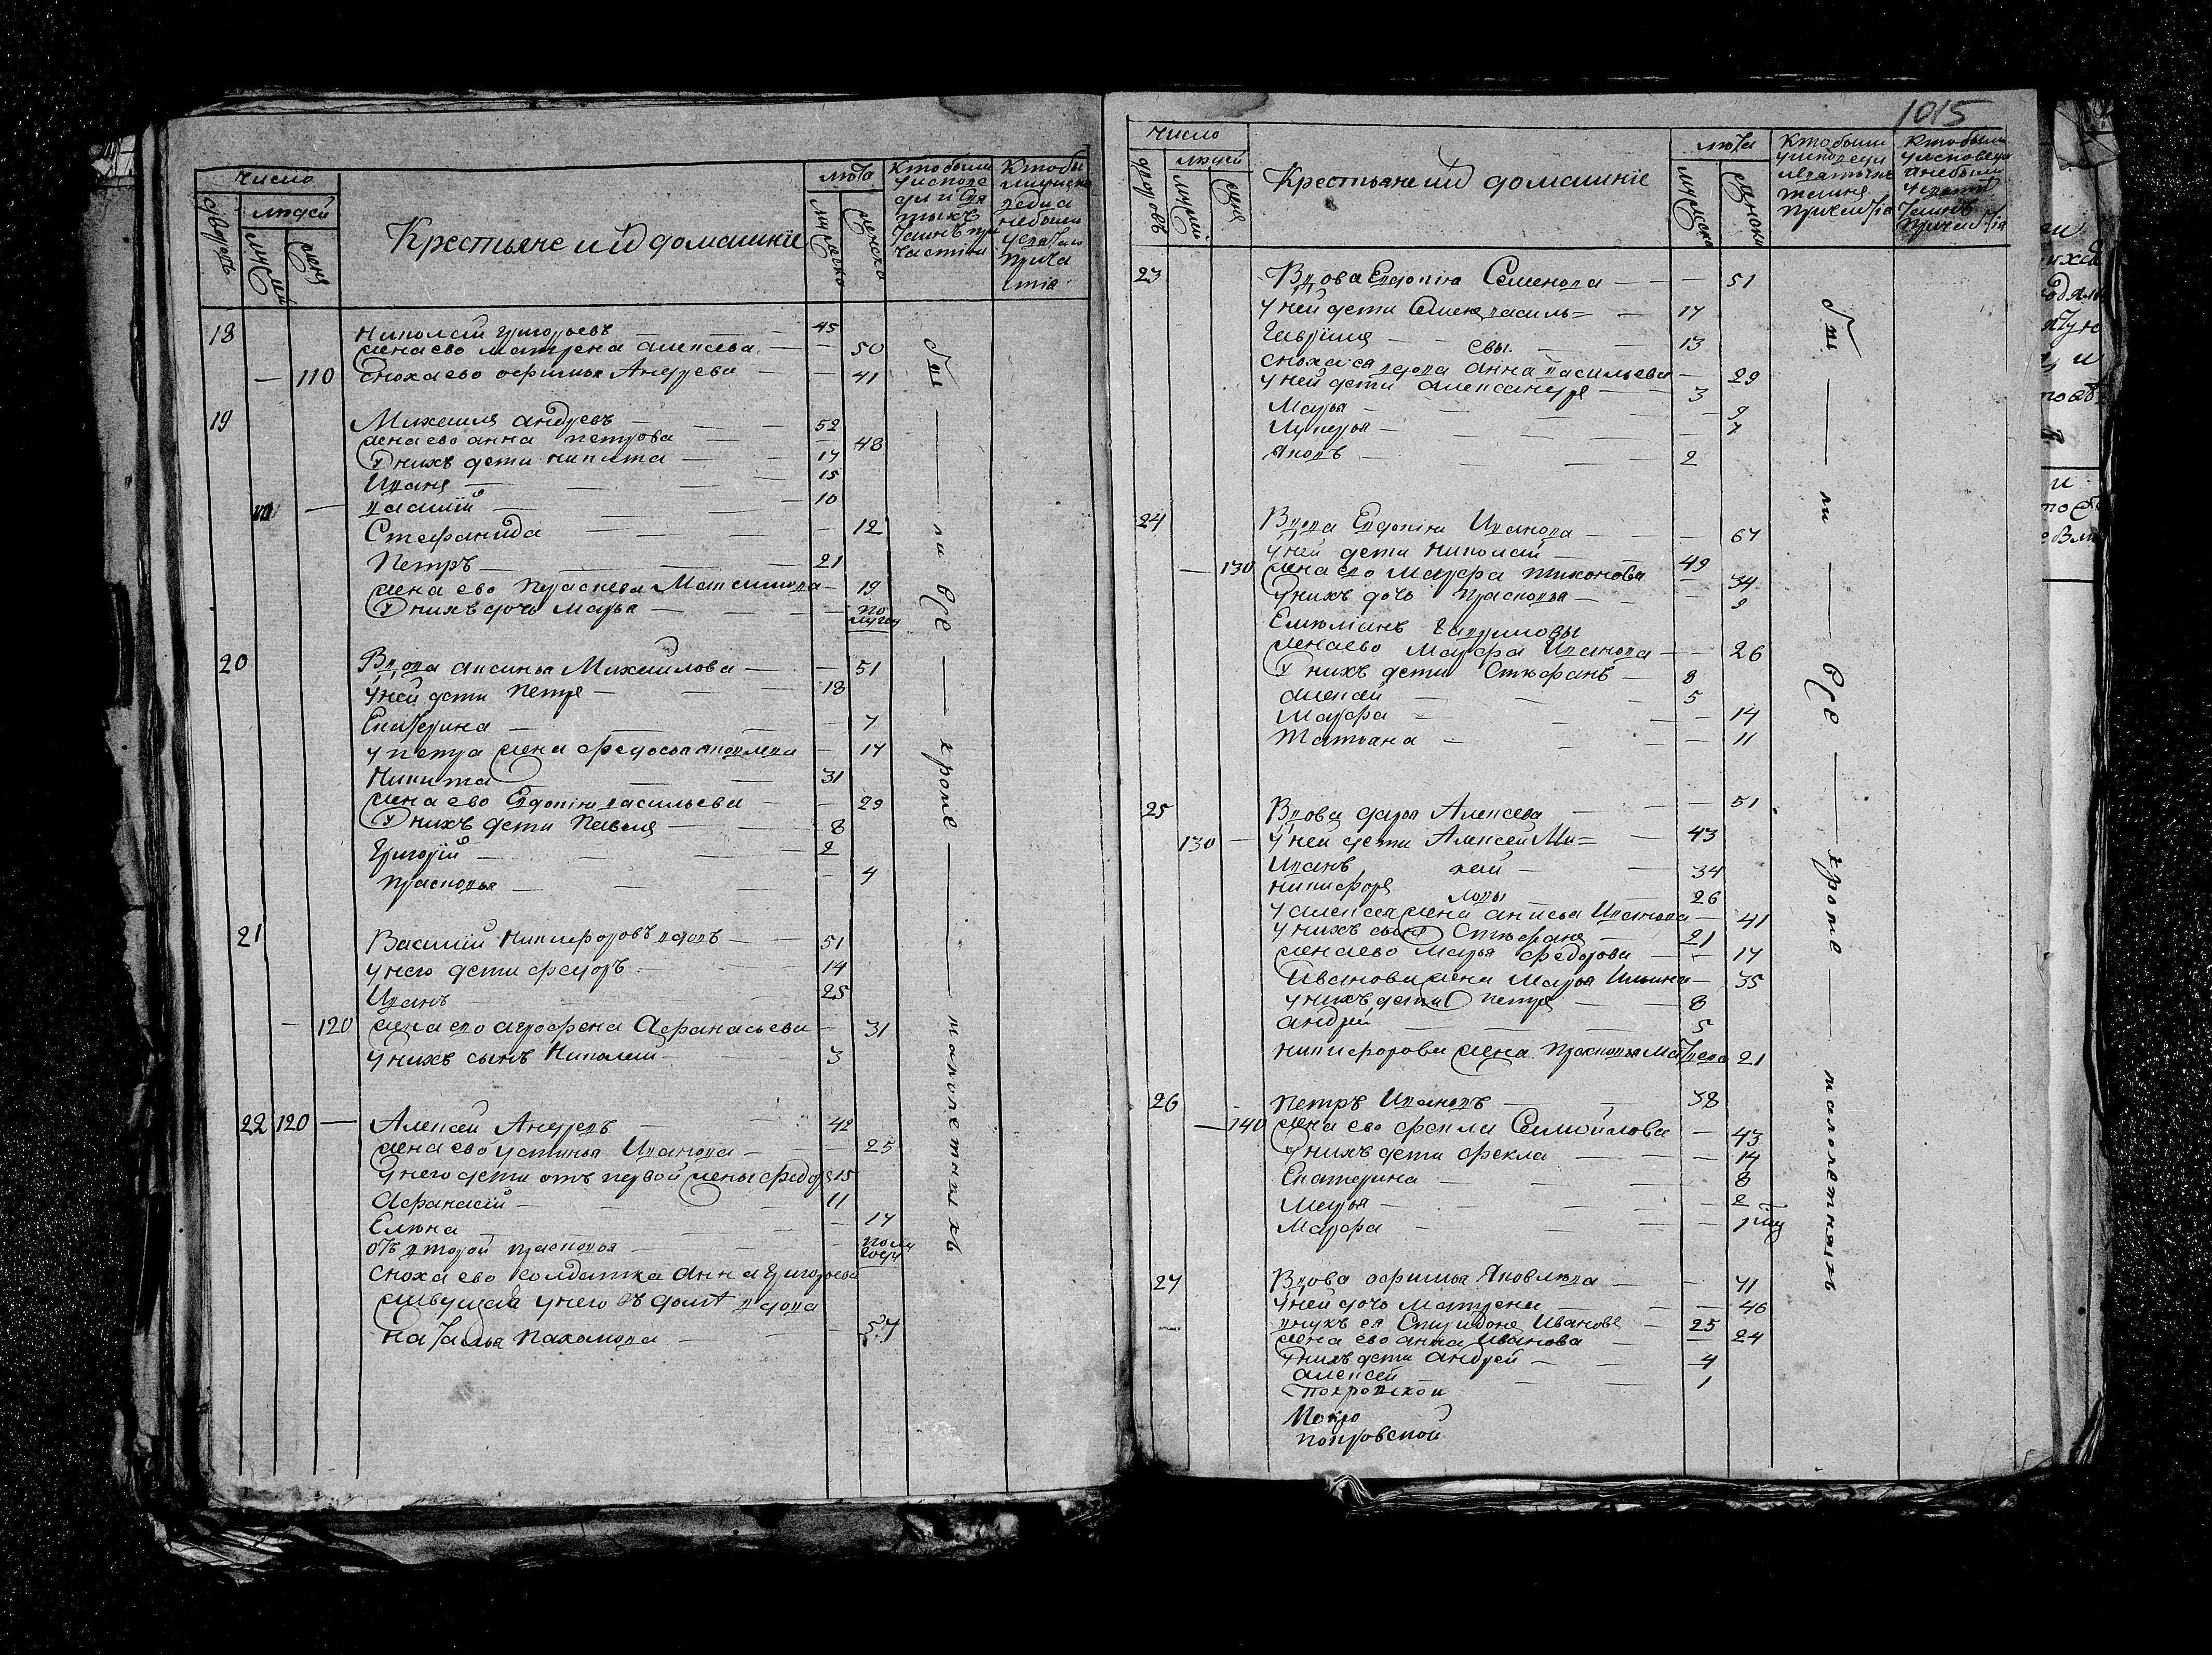 число
дворовъ
людей
муж
жен
Крестьяне и ихъ домашніе
лѣта
мужеска
женска
Кто были у исповеди и святыхъ таинъ причастіи
Кто был у исповеди а не были у святаго причастія
18 Николай Григорьевъ — 45
жена ево Матрена Алексева — 50
— 110 Сноха ево Офимья Андреева — 41
19 Михаила Андреевъ — 52
жена ево Анна Петрова — 48
У нихъ дети Никита — 17
Иванъ — 15
Василій — 10
Стефанида — 12
Петръ — 21
жена ево Праскева Максимова — 19
У нихъ дочь Марья — полугод
20 Вдова Аксинья Михаилова — 51
у ней дети Петръ — 18
Екатерина — 7
у Петра жена Федосья Яковлева — 17
Никита — 31
жена ево Евдокия Васильева — 29
У нихъ дети Павелъ — 8
Григорій — 2
Прасковья — 4
21 Василій Никифоровъ вдовъ — 51
у него дети Федоръ — 14
Иванъ — 25
— 120 жена ево Агрофена Афанасьева — 31
у нихъ сынъ Николай — 3
22 120 — Алексей Андреевъ — 42
жена ево Устинья Иванова — 25
У него дети отъ первой жены Федоръ 15
Афанасій — 11
Елена — 17
отъ второй Прасковья — полугоду
Сноха ево солдатка Анна Григорьева
живущая у него въ доме вдова
Наталья Пахомова — 57
бы — ли все — кроме — малолетныхъ
1015
число
дворовъ
людей
мужей
жен
Крестьяне и ихъ домашніе
лѣта
мужеска
женска
Кто были у исповеди и святыхъ таинъ причастія
Кто были у исповеди а не были у святыхъ таинъ причастія
23 Вдова Евдокия Семенова — 51
у ней дети Семенъ Василь= — 17
Гаврила — евы — 13
сноха ея вдова Анна Васильева — 29
у ней дети Александръ — 3
Марья — 9
Лукерья — 7
Яковъ — 2
24 Вдова Евдокия Иванова — 67
у ней дети Николай — 49
— 130 жена ево Марфа Тихонова — 34
У нихъ дочь Прасковья — 9
Емельянъ Гавриловы
жена ево Марфа Иванова — 26
У нихъ дети Стефанъ — 8
Алексей — 5
Марфа — 14
Татьана — 11
25 Вдова Дарья Алексева — 51
130 — у ней дети Алексей Ми= — 43
Иванъ хай — 34
Никифоръ ловы — 26
у Алексея жена Анисья Иванова — 41
у нихъ сынъ Стефанъ — 21
жена ево Марья Федорова — 17
Иванова жена Марья Ильина — 35
у нихъ дети Петръ — 8
Андрей — 5
Никифорова жена Прасковья Матвеева 21
26 Петръ Ивановъ — 38
— 140 жена ево Фекла Самойлова — 43
У нихъ дети Фекла — 14
Екатерина — 8
Марья — 2
Марфа — 1
27 Вдова Офимья Яковлева — 71
у ней дочь Матрена — 46
внукъ ея Спиридонъ Ивановъ — 25
жена ево Анна Иванова — 24
У нихъ дети Андрей — 4
Алексей — 1
Покровской
Покро
Покровской
бы — ли — все — кроме — малолетныхъ